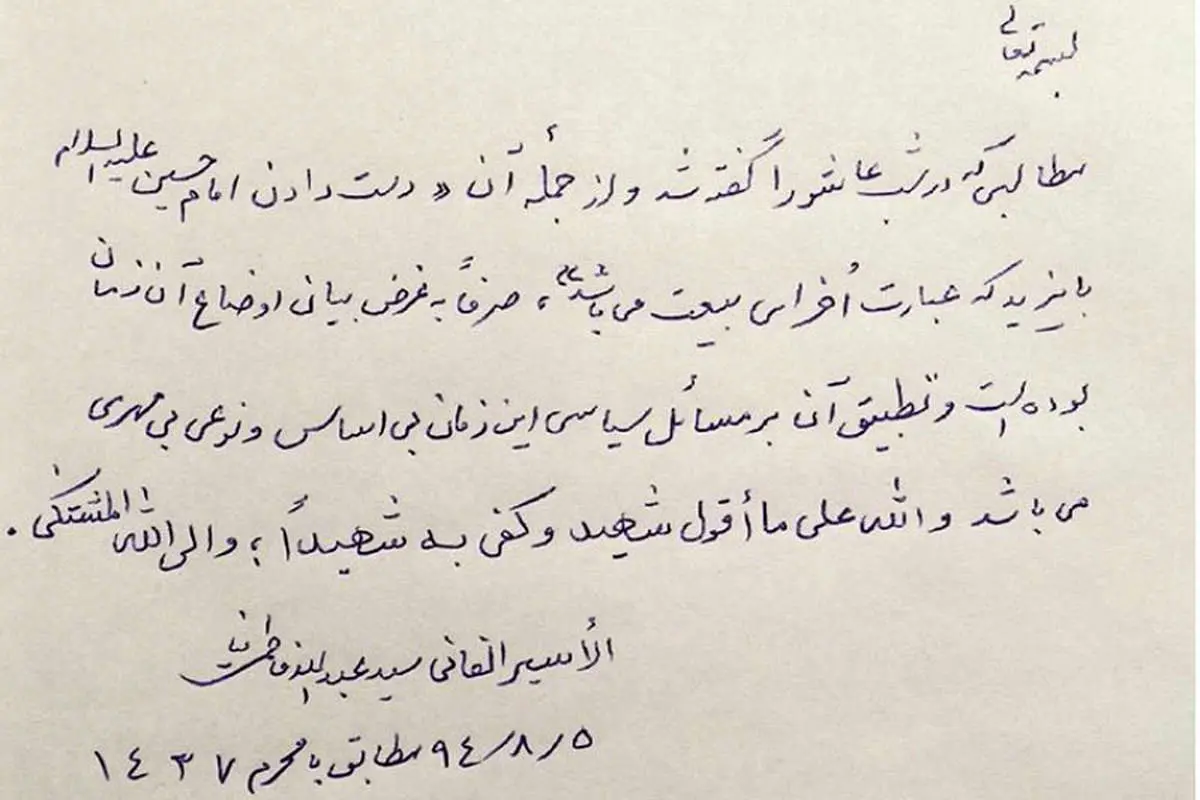 بسمه تعالی
مطالبی که در شب عاشورا گفته شد و از جمله آن « دست دادن امام حسین علیه السلام
با یزید که عبارت أُخرای بیعت می باشد» ، صرفاً به غرض بیانی اوضاع آن زمان
بوده است و تطبیق آن بر مسائل سیاسی این زمان بی اساس و نوعی بی مهری
می باشد و الله علی ما أقول شهید و کفی به شهیداً ؛ و الی الله المشتکی .
الأسیر الفانی سید عبدالله فاطمی نیا
٩٤/٨/٥ مطابق با محرم ١٤٣٧